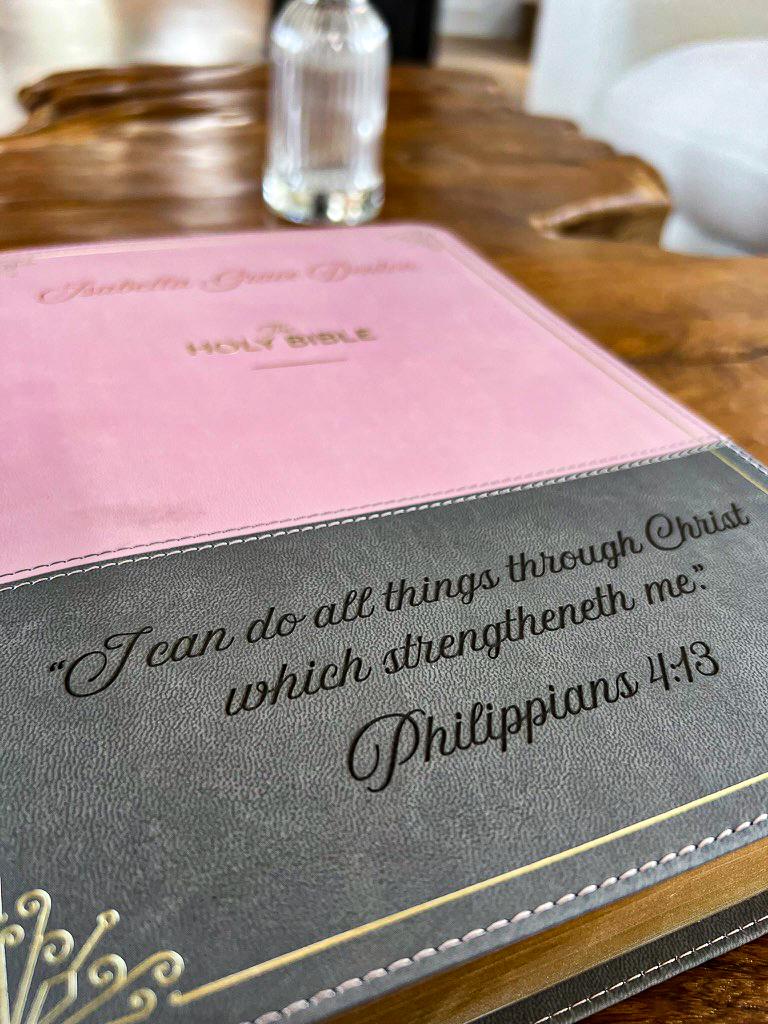 Isabella Grace
The
HOLY BIBLE
“I can do all things through Christ
which strengtheneth me.”
Philippians 4:13